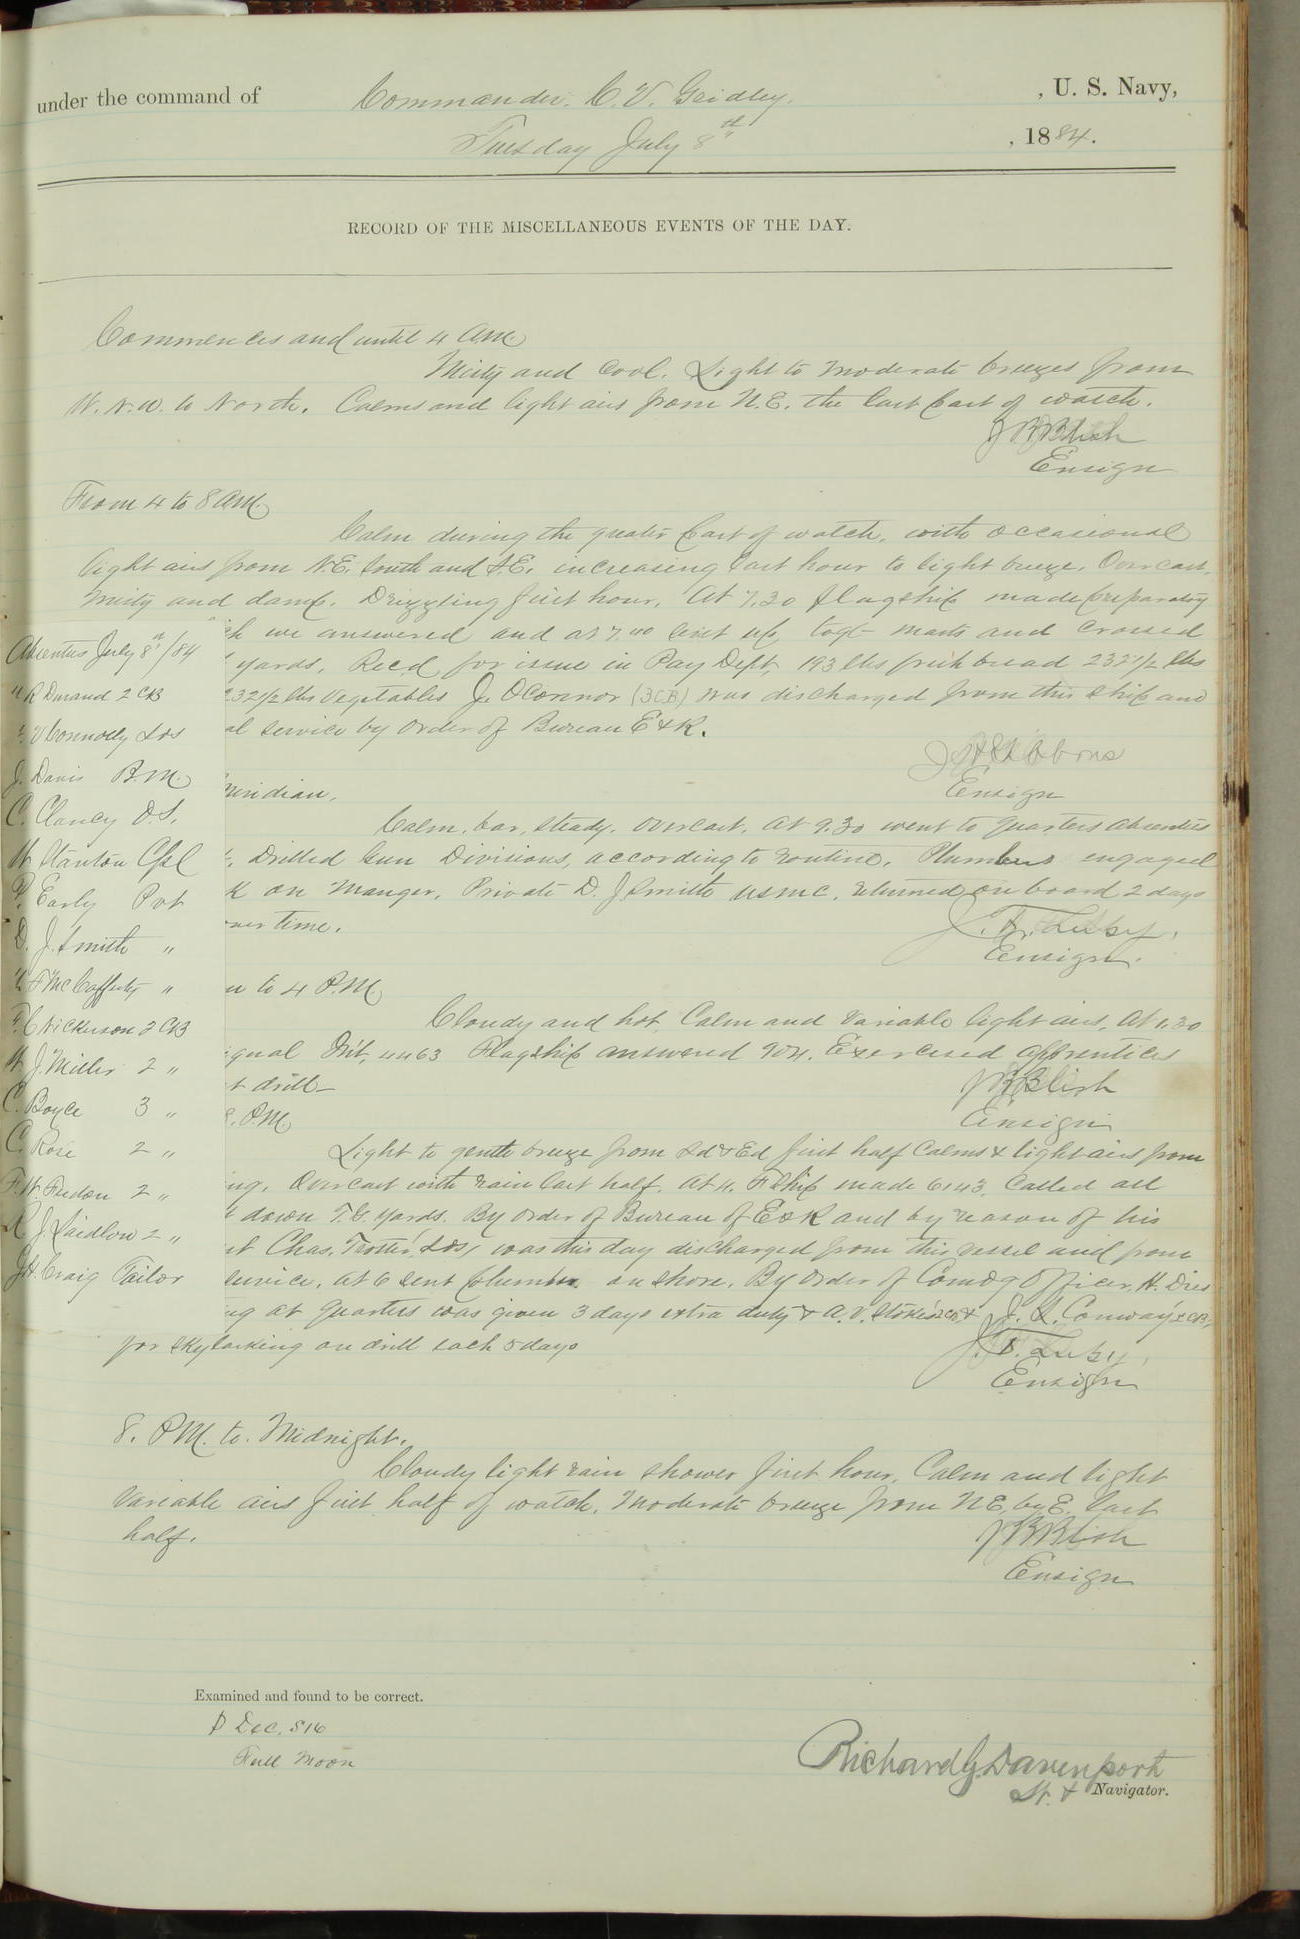 under the command of Commander. C. V. Gridley. , U. S. Navy,
Tuesday July 8th , 1884.
RECORD OF THE MISCELLANEOUS EVENTS OF THE DAY.
Commences and until 4 A.M.
Misty and cool. Light to moderate breezes from
W.N.W. to North. Calms and light airs from N.E. the last part of watch.
J B Blish
Ensign
From 4 to 8 A.M.
Calm during the greater part of watch, with occasional
light airs from N.E. South and S.E. increasing last hour to light breeze. Overcast,
misty and damp. Drizzling first hour. At 7.30 flagship made preparatory
ch we answered and at 7.40 sent up togt masts and crossed
yards. Recd. for issue in Pay Dept. 193 lbs fresh bread 232 1/2 lbs
232 1/2 lbs vegetables J. O'Connor (3CB) was discharged from this ship and
al service by order of Bureau E & R.
J H Gibbons
Ensign
meridian.
Calm, bar, steady. Overcast. At 9.30 went to quarters absentees
Drilled Gun Divisions, according to routine. Plumbers engaged
k on manger. Private D. J Smith USMC. returned on board 2 days
over time.
Ensign.
n to 4 P.M.
Cloudy and hot. Calm and variable light airs. At 1.30
ignal Int. 4463 Flagship answered 904. Exercised apprentices
t drill
J B Blish
Ensign
8. P.M.
Light to gentle breeze from Sd & Ed first half Calms & light airs from
ing. Overcast with rain last half. At 4. F Ship made 6143. Called all
t down T.G. yards. By order of Bureau of E & R and by reason of his
nt Chas. Trotter, Lds, was this day discharged from this vessel and from
service. At 6 sent plumbers on shore. By order of Comdg Officer, H. Dies
ng at quarters was given 3 days extra duty & A. V. Stokes 2CB & J. L. Conway 2CB,
for skylarking on drill each 5 days
Ensign
8. P.M. to Midnight.
Cloudy light rain shower first hour. Calm and light
variable airs first half of watch. Moderate breeze from N.E. by E. last
half.
J B Blish
Ensign
Absentees July 8th/84
R Durand 2 CB
V Connolly Lds
J. Davis B.M.
C. Clancy O.S.
W. Stanton Cpl
P. Early Pvt
D. J. Smith "
F McCafferty "
F. C Nickerson 2 CB
W. J. Miller 2 "
C. Boyce 3 "
C. Rose 2 "
F. W. 2 "
R J. Laidlow 2 "
J H. Craig Tailor
Examined and found to be correct.
D Dec. S16
Full Moon
Richard G Davenport
Lt. & Navigator.